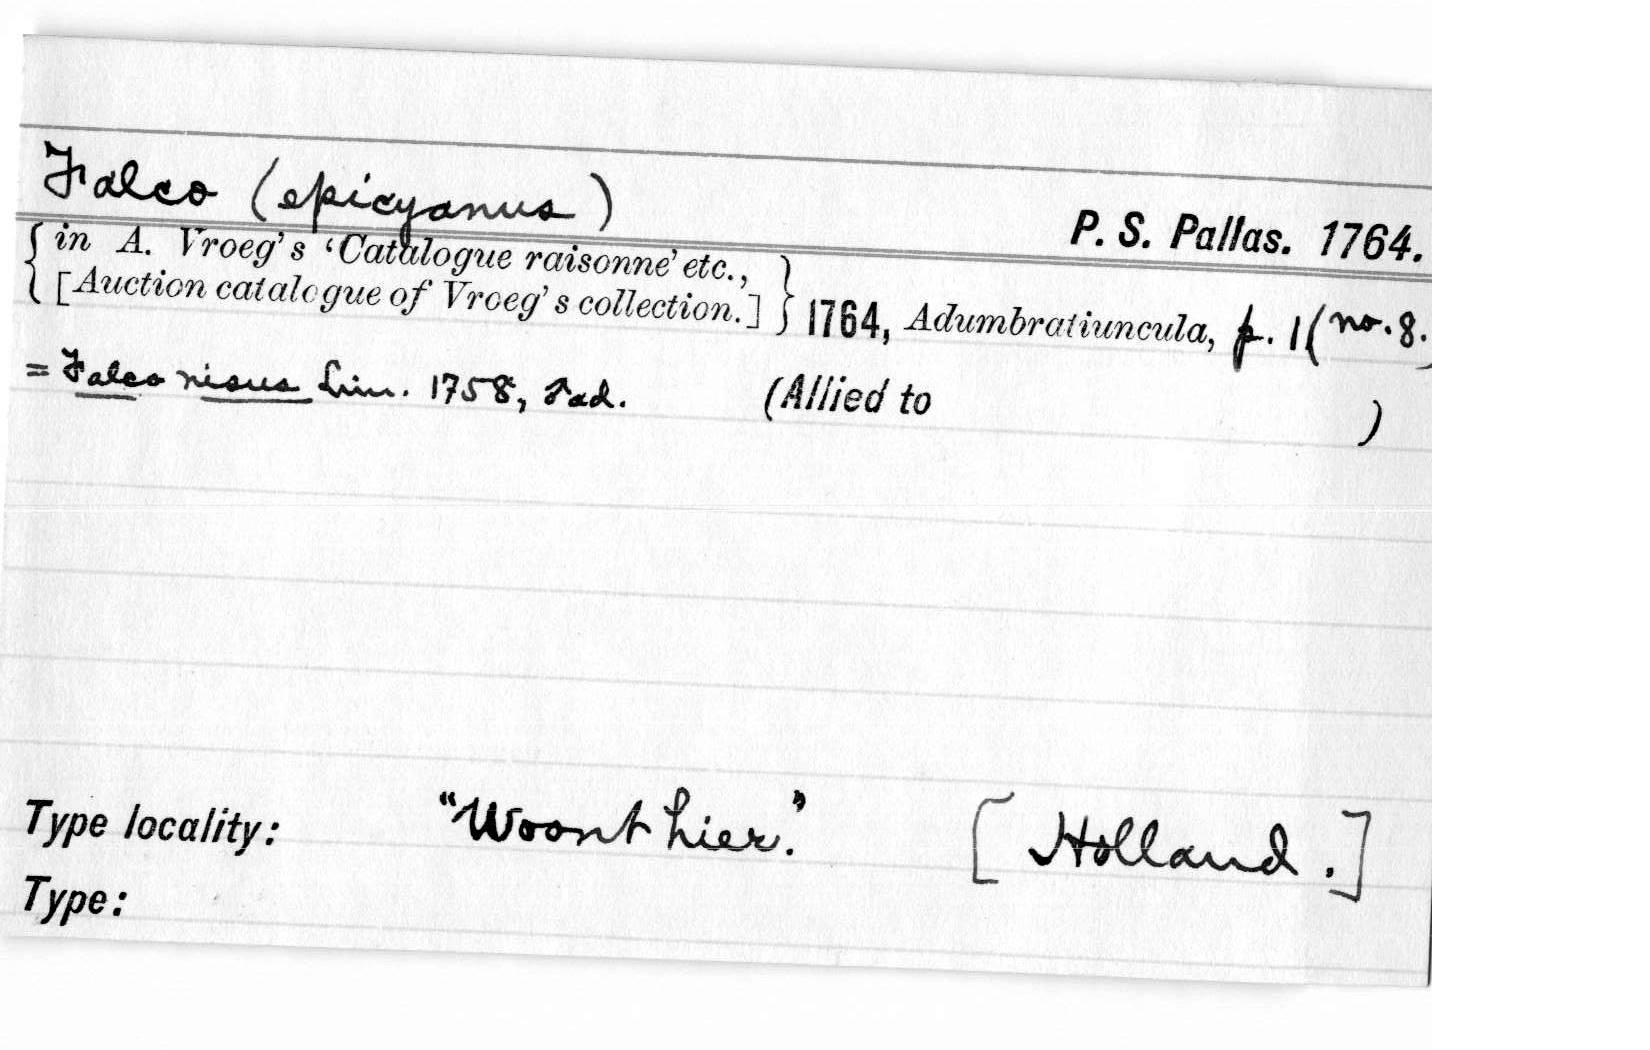 Falco (epicyanus)
P. S. Pallas. 1764.
{in A. Vroeg's 'Catalogue raisonne' etc.,
[Auction catalogue of Vroeg's collection.]} 1764, Adumbratiuncula, p. 1 (no. 8.)
= Falco nisus Lin. 1758, Fad. (Allied to )
Type locality: "Woont hier." [Holland.]
Type: